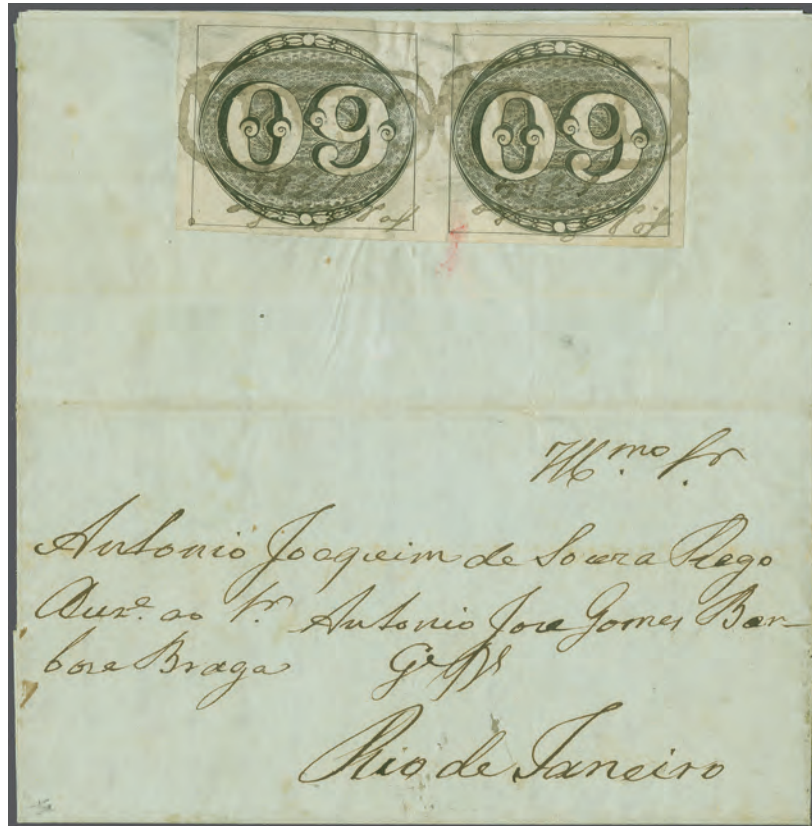 09 09
Illmo Sr
Antonio Joaquim de Souza Rego
Auze. ao Sr. Antonio Jose Gomes Bar-
bosa Braga
Rio de Janeiro